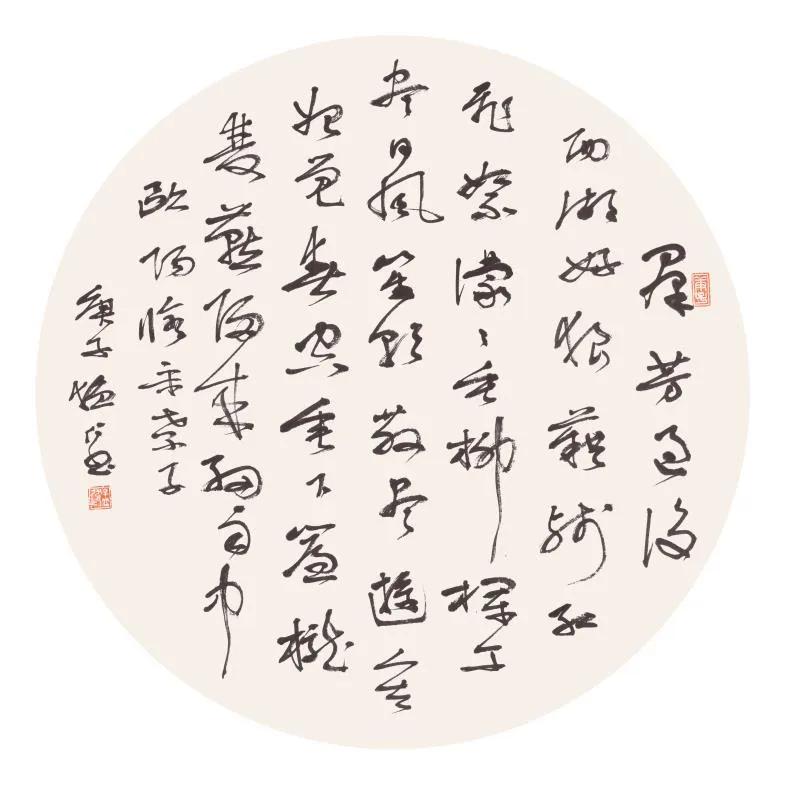 羣芳過後
西湖好狼藉殘紅
飛絮濛〻垂柳欄干
尽日風笙歌散尽遊人去
始覺春空垂下簾櫳
雙燕歸來細雨中
歐陽脩采桑子
庚子